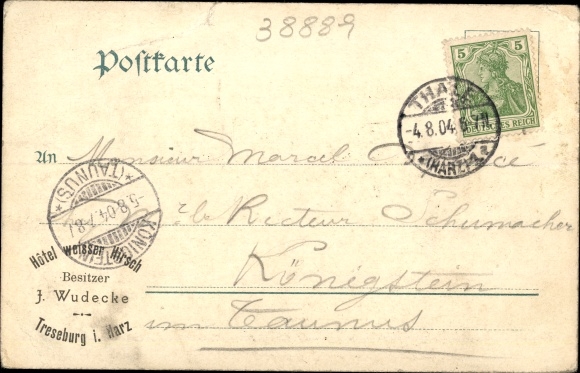 38889
Postkarte
5
DEUTSCHES REICH
THALE
-4.8.04.
*(HARZ)*
An Monsieur Marcel
KÖNIGSTEIN
-5.8.04.7-8
*(TAUNUS)*
Recteur Schumacher
Hôtel weisser Hirsch
Besitzer
J. Wudecke
Treseburg i. Harz
Königstein
im Taunus